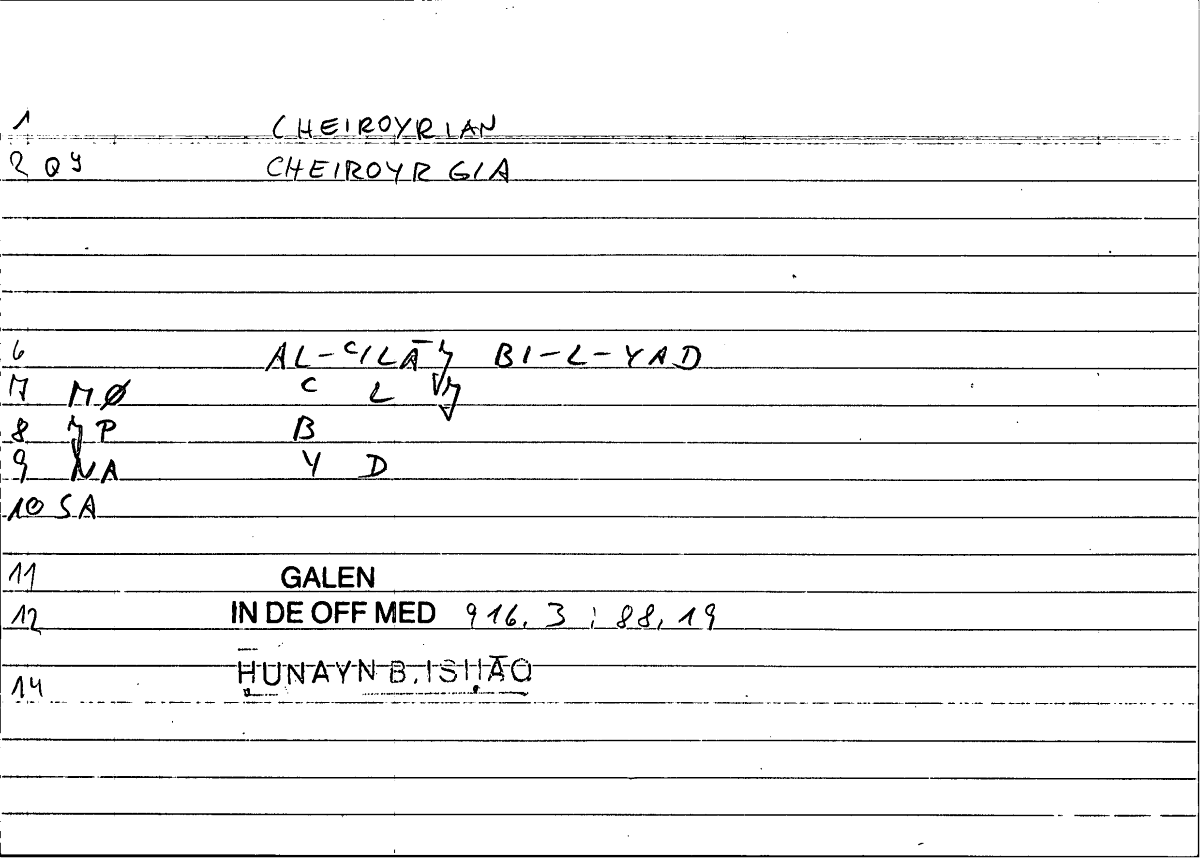 1 CHEIROYRIAN
2 QY CHEIROYRGIA
6 AL-ʿILĀǦ BI-L-YAD
7 MØ ʿ L Ǧ
8 JP B
9 NA Y D
10 SA
11 GALEN
12 IN DE OFF MED 916,3 ; 88,19
14 ḤUNAYN B. ISḤĀQ